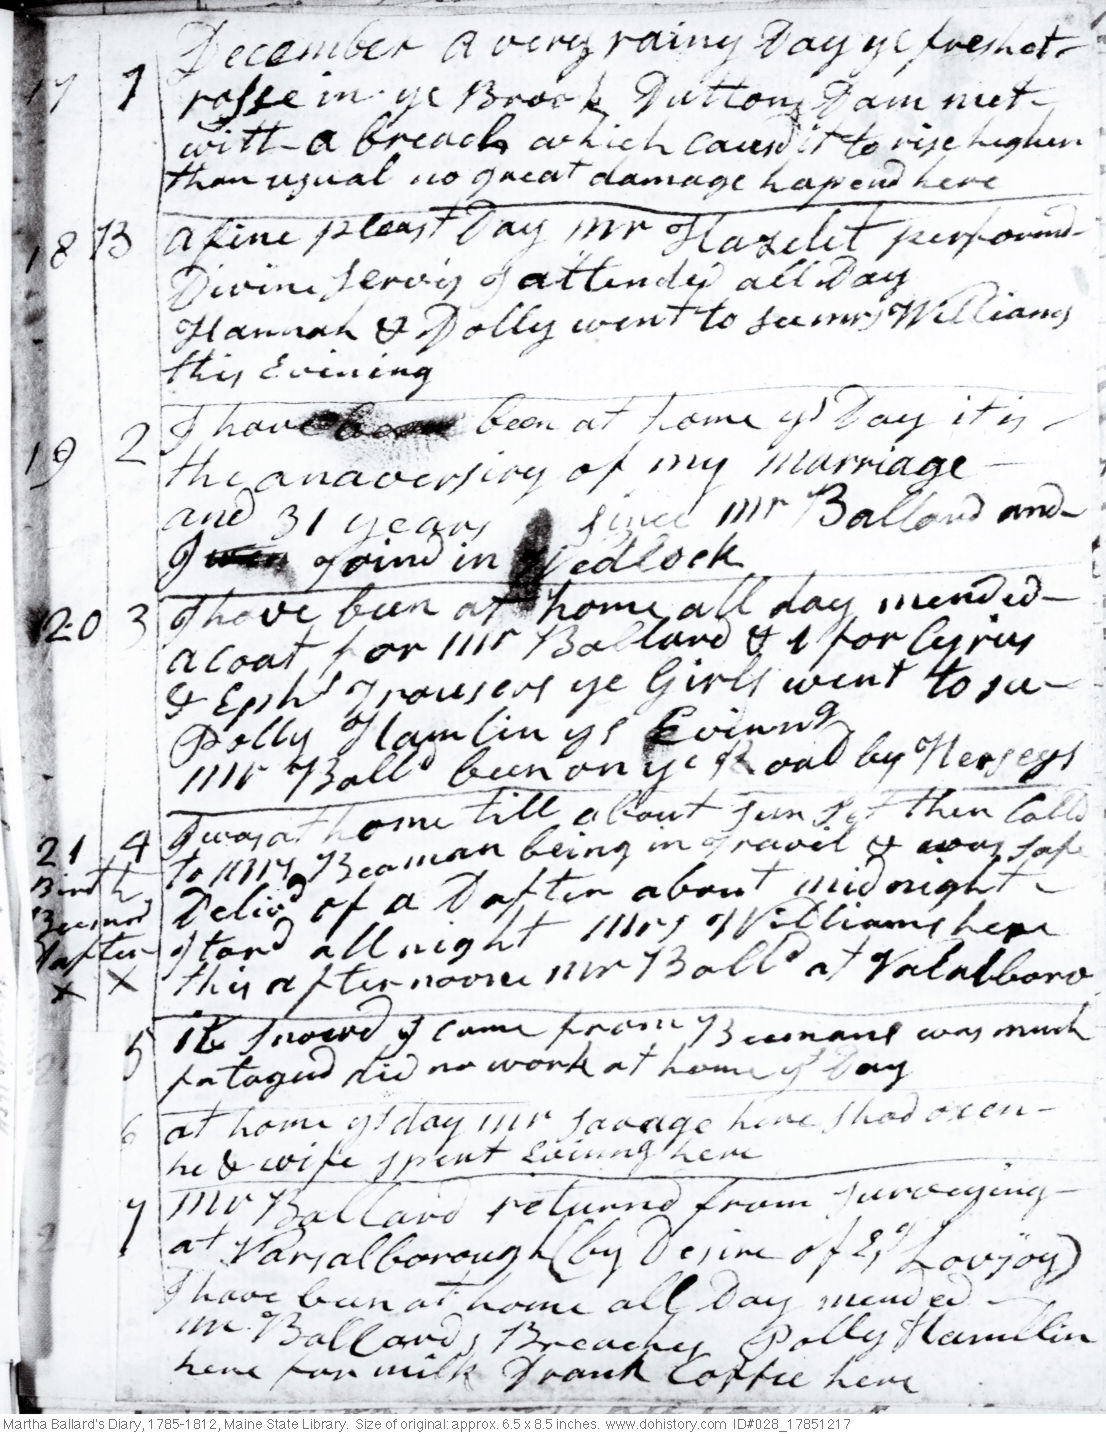 December A very rainy Day ye freshet
17 7 rosse in ye Brook Duttons Dam met
with a breach which causd it to rise higher
than usual no great damage hapend here
18 B A fine pleast Day mr Hazelet performd
Divine Servis I attended all Day
Hannah & Dolly went to see mrs Williams
this Evining
19 2 I have been at home ys Day it is
the anaversiry of my marriage
and 31 years since mr Ballard and
I joind in Wedlock
20 3 I have been at home all day mended
a coat for mr Ballard & 1 for Cyrius
& Ephms Trousers ye Girls went to see
Polly Hamlin ys Evinng
mr Balld been on ye Road by Herseys
21 4 I was at home till about sun set then Calld
Birth to mrs Beaman being in Travil & was safe
Beemons Delivd of a Dafter about midnight
Dafter I tard all night mrs Williams here
X X this afternoone mr Balld at Vasalboro
5 it snowd I came from Beemans was much
fatagud did no work at home ys Day
6 at home ys day mr savage here shod oxen
he & wife spent Evinng here
7 mr Ballard returnd from surveying
at Varsalborough (by Desire of Esqr Lovjoy)
I have been at home all Day mended
mr Ballards Breaches Polly Hamlin
here for milk Drank Coffee here
Martha Ballard's Diary, 1785-1812, Maine State Library. Size of original: approx. 6.5 x 8.5 inches. www.dohistory.com ID#028_17851217